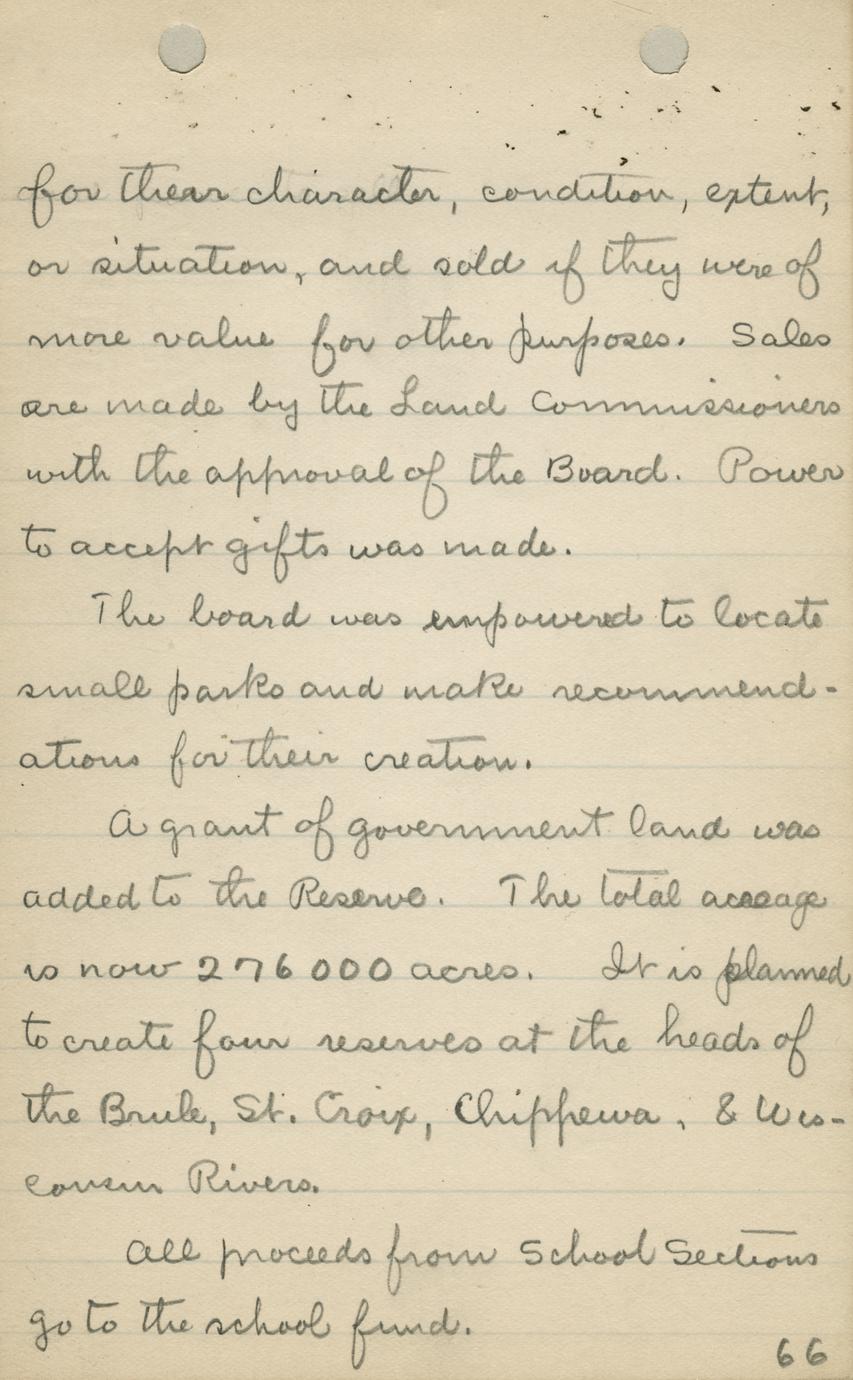 for their character, condition, extent,
or situation, and sold if they were of
more value for other purposes. Sales
are made by the Land Commissioners
with the approval of the Board. Power
to accept gifts was made.
The board was empowered to locate
small parks and make recommend-
ations for their creation.
A grant of government land was
added to the Reserve. The total acreage
is now 276000 acres. It is planned
to create four reserves at the heads of
the Brule, St. Croix, Chippewa, & Wis-
consin Rivers.
All proceeds from School Sections
go to the school fund.
66